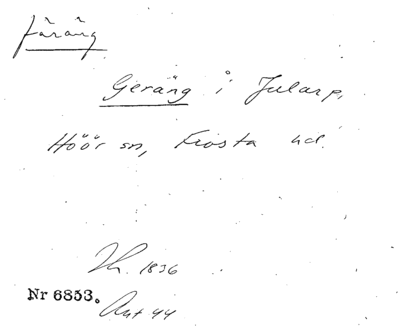 Färäng
Geräng i Jularp,
Höör sn, Frosta hd.
1836
Nr 6853. Ant 44